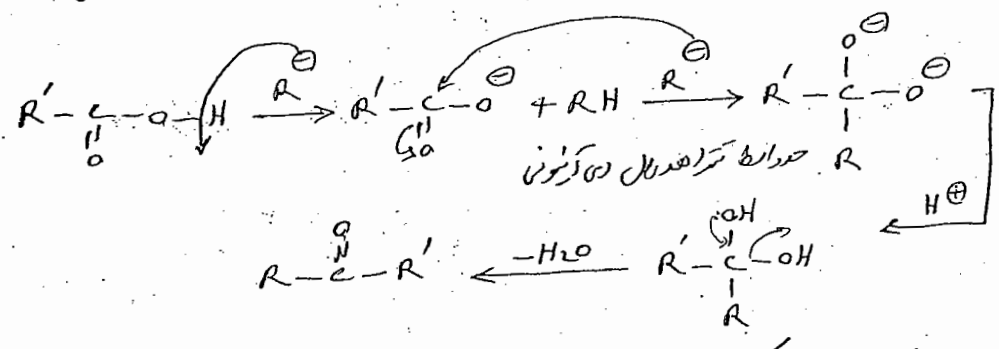 R′ – C – O – H →(R⊖) R′ – C – O⊖ + RH →(R⊖) R′ – C – O⊖
حد واسط تتراهدرال دی آنیونی
H⊕
R – C – R′ ←(–H2O) R′ – C – OH